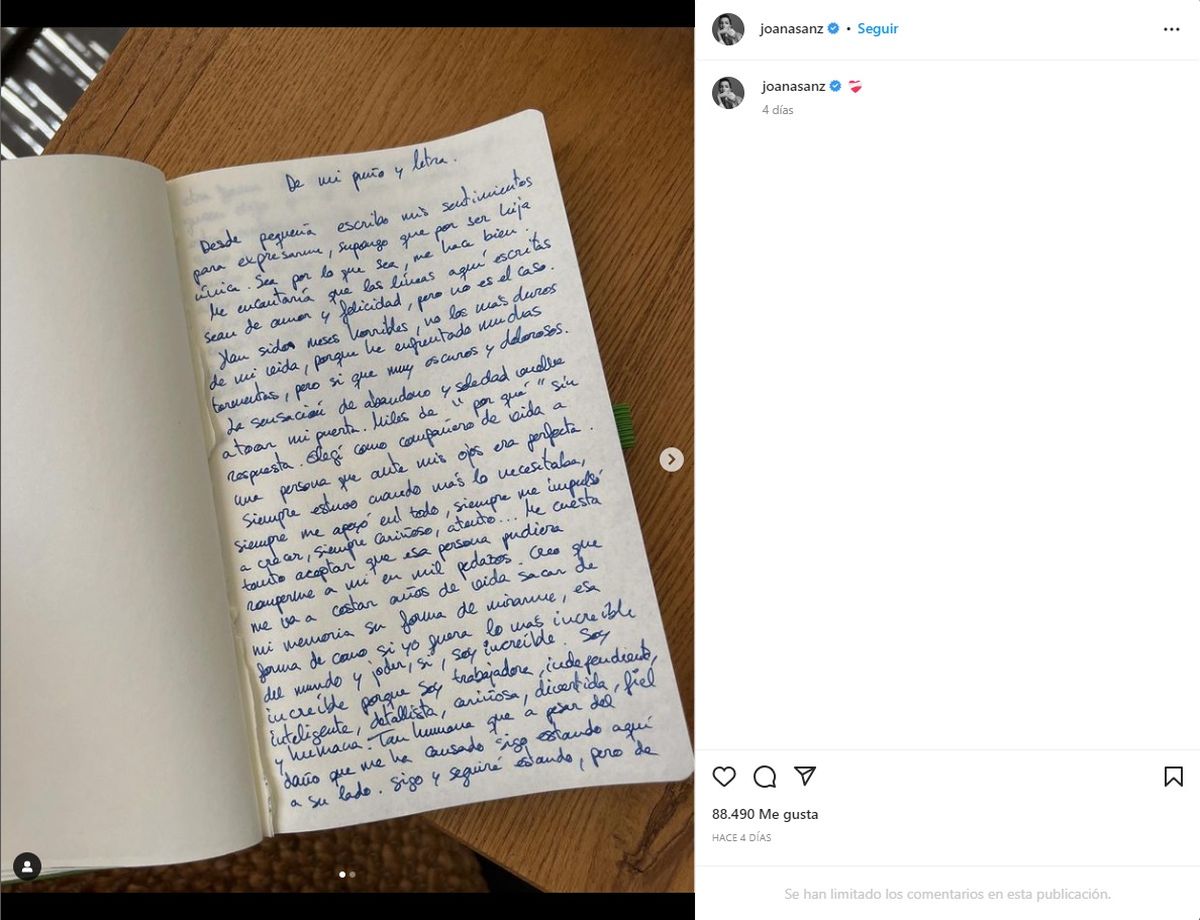 De mi puño y letra.
Desde pequeña escribo mis sentimientos
para expresarme, supongo que por ser hija
única. Sea por lo que sea, me hace bien.
Me encantaría que las líneas aquí escritas
sean de amor y felicidad, pero no es el caso.
Han sido meses horribles, no los más duros
de mi vida, porque he enfrentado muchas
tormentas, pero si que muy oscuros y dolorosos.
La sensación de abandono y soledad vuelve
a tocar mi puerta. Miles de "por qué" sin
respuesta. Elegí como compañero de vida a
una persona que ante mis ojos era perfecta.
Siempre estuvo cuando más lo necesitaba,
siempre me apoyó en todo, siempre me impulsó
a crecer, siempre cariñoso, atento... Me cuesta
tanto aceptar que esa persona pudiera
romperme a mi en mil pedazos. Creo que
me va a costar años de vida sacar de
mi memoria su forma de mirarme, esa
forma de como si yo fuera lo mas increíble
del mundo y joder, si, soy increíble. Soy
increíble porque soy trabajadora, independiente,
inteligente, detallista, cariñosa, divertida, fiel
y humana. Tan humana que a pesar del
daño que me ha causado sigo estando aquí
a su lado. Sigo y seguiré estando, pero de
joanasanz • Seguir
joanasanz
4 días
88.490 Me gusta
HACE 4 DÍAS
Se han limitado los comentarios en esta publicación.